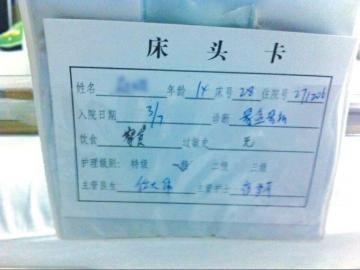 床头卡
姓名 年龄 14 床号 28 住院号 271226
入院日期 3/7 诊断
饮食 禁食 过敏史 无
护理级别: 特级 一级 二级 三级
主管医生 主管护士